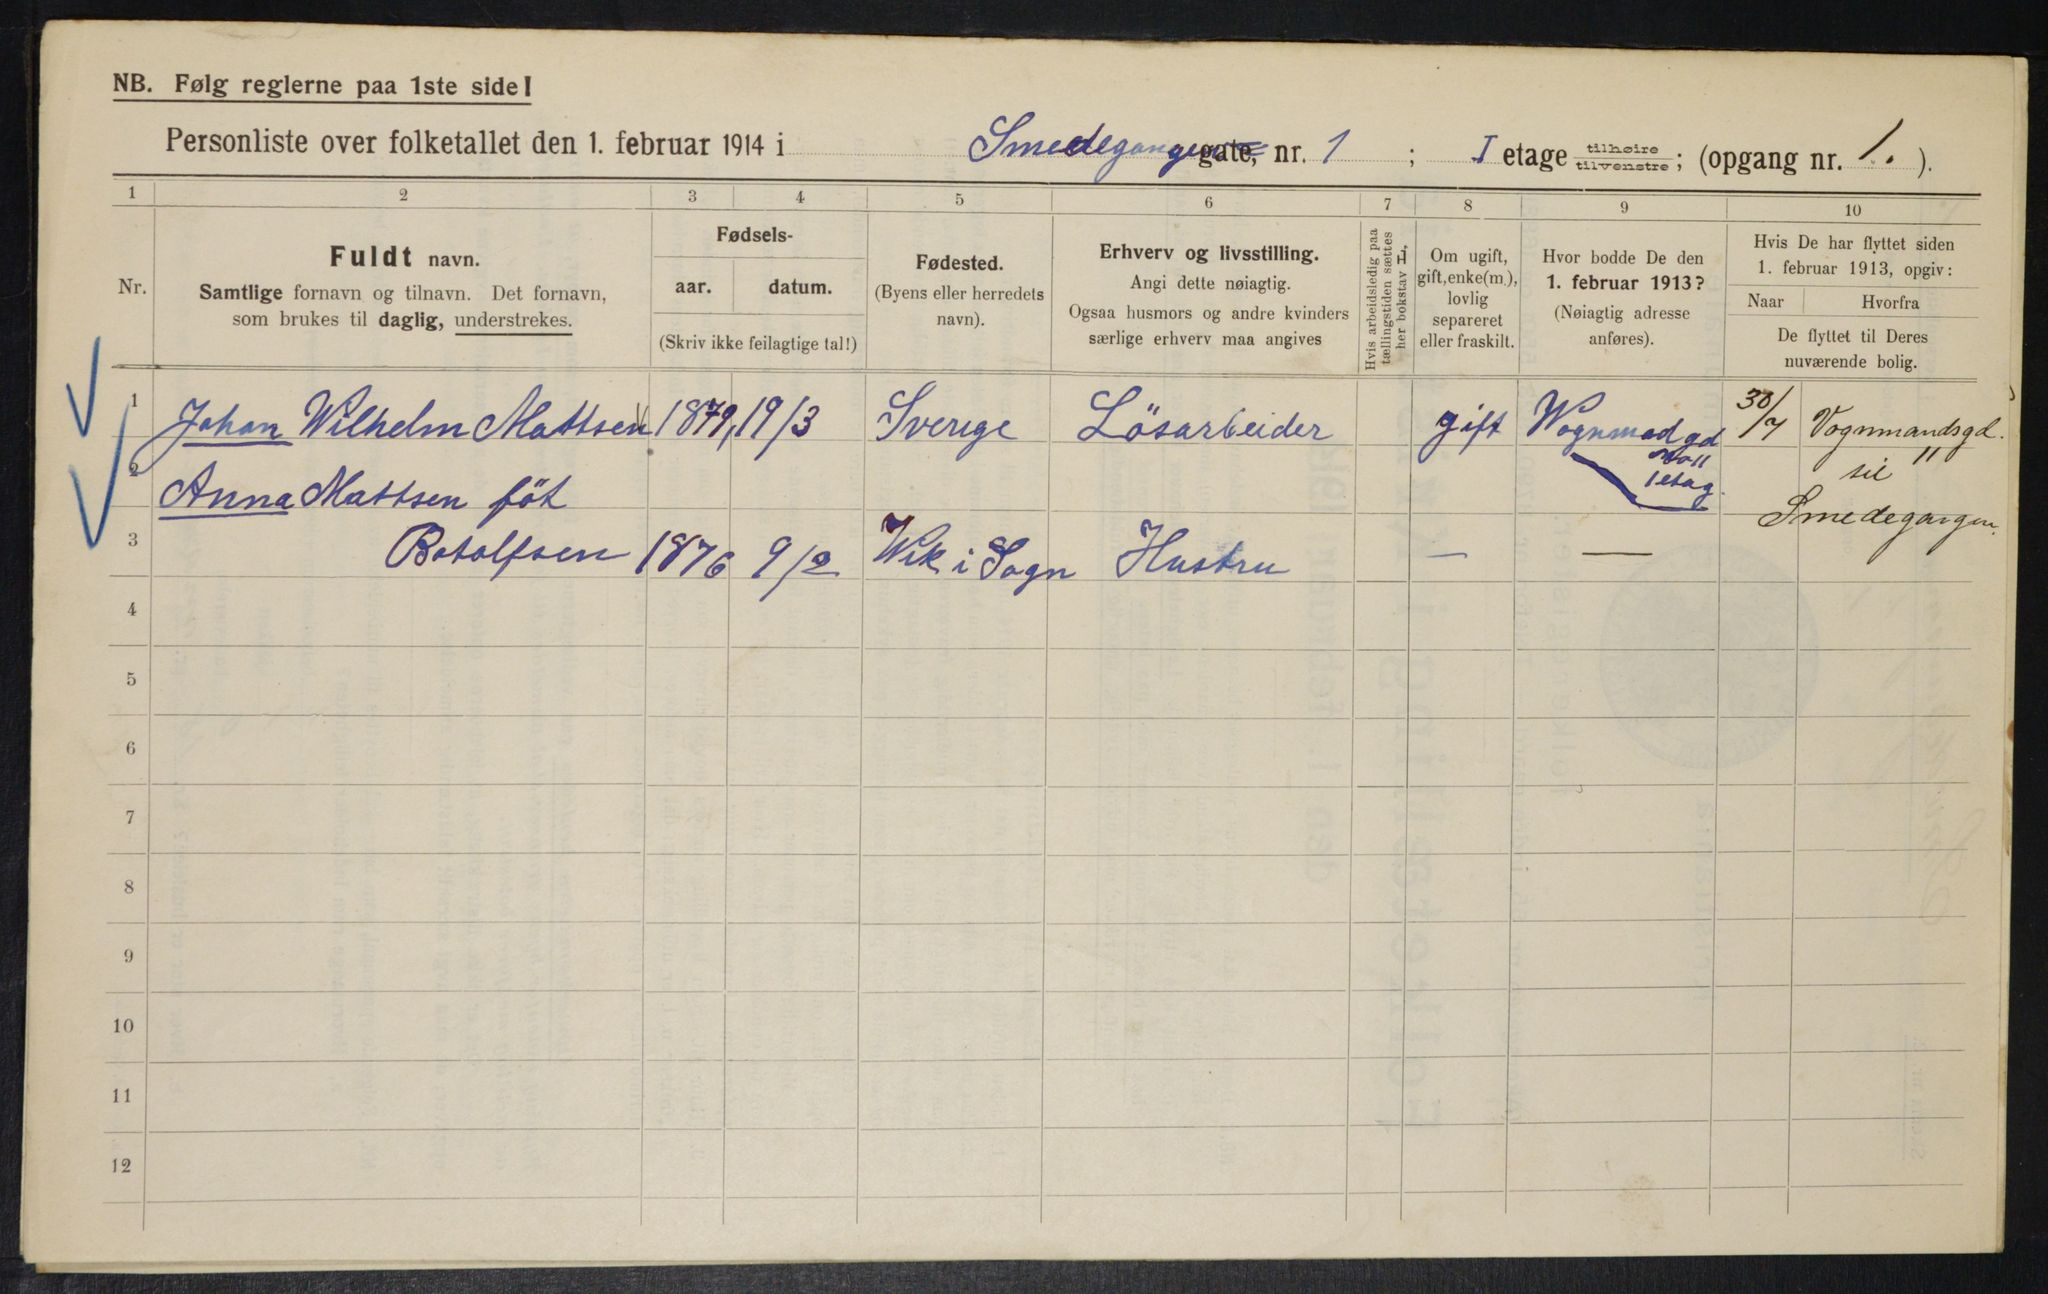 NB. Følg reglerne paa 1ste side!
Personliste over folketallet den 1. februar 1914 i Smedegangen gate, nr. 1 ; I etage tilhøire tilvenstre ; (opgang nr. 1. ).
1 2 3 4 5 6 7 8 9 10
Nr.
Fuldt navn.
Samtlige fornavn og tilnavn. Det fornavn,
som brukes til daglig, understrekes.
Fødsels-
aar. datum.
(Skriv ikke feilagtige tal!)
Fødested.
(Byens eller herredets
navn).
Erhverv og livsstilling.
Angi dette nøiagtig.
Ogsaa husmors og andre kvinders
særlige erhverv maa angives
Hvis arbeidsledig paa
tællingstiden sættes
her bokstav L,
Om ugift,
gift, enke(m.),
lovlig
separeret
eller fraskilt.
Hvor bodde De den
1. februar 1913?
(Nøiagtig adresse
anføres).
Hvis De har flyttet siden
1. februar 1913, opgiv:
Naar Hvorfra
De flyttet til Deres
nuværende bolig.
1 Johan Wilhelm Mattsen 1879, 19/3 Sverige Lösarbeider gift Wognmadgd 30/7 Vognmandsgd.
No 11 11
1 etag. til
2 Anna Mattsen föt
Smedegangen.
3 Botolfsen 1876 9/2 Wik i Sogn Hustru — —
4
5
6
7
8
9
10
11
12